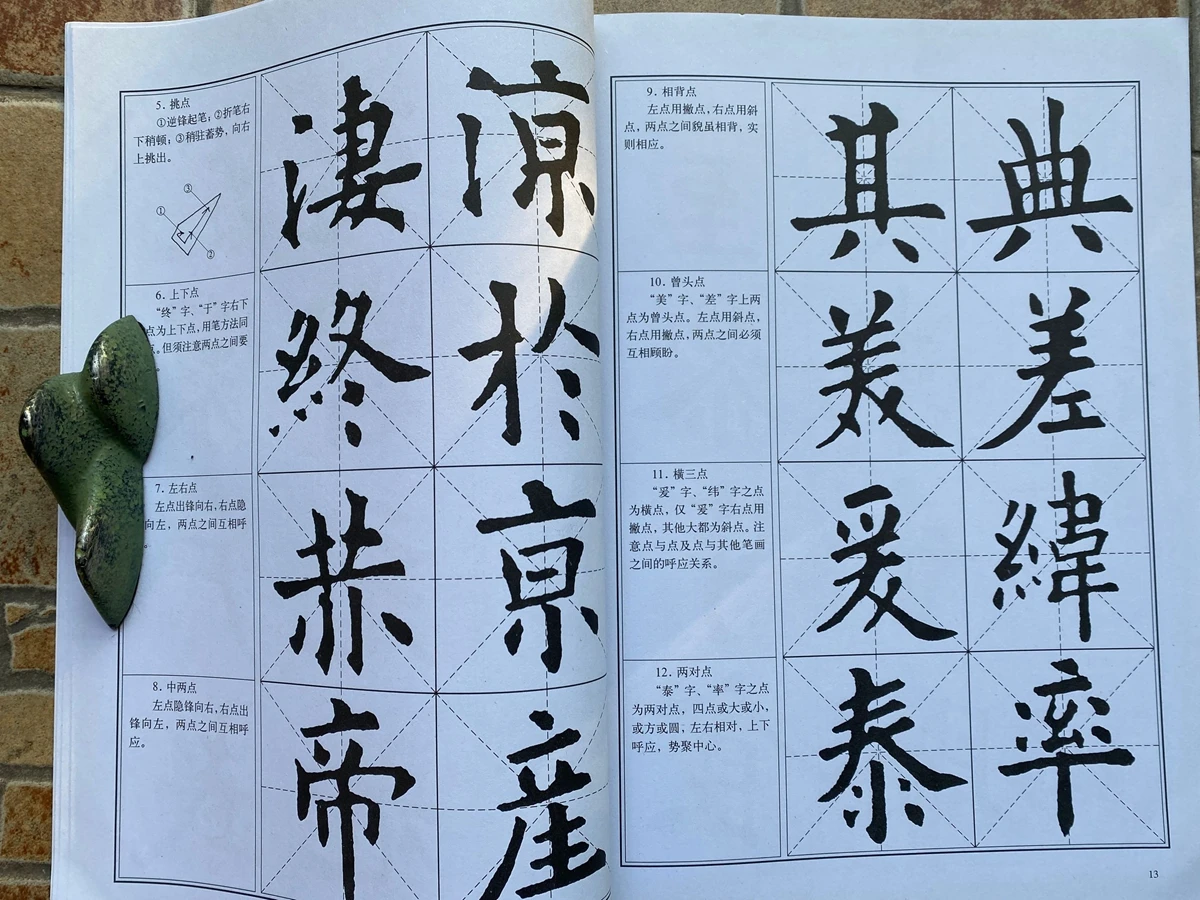 5. 挑点
①逆锋起笔；②折笔右
下稍顿；③稍驻蓄势，向右
上挑出。
③
①
②
淒涼
6. 上下点
“终”字、“于”字右下
点为上下点，用笔方法同
但须注意两点之间要
終於
7. 左右点
左点出锋向右，右点隐
向左，两点之间互相呼
恭京
8. 中两点
左点隐锋向右，右点出
锋向左，两点之间互相呼
应。
帝産
9. 相背点
左点用撇点，右点用斜
点，两点之间貌虽相背，实
则相应。
其典
10. 曾头点
“美”字、“差”字上两
点为曾头点。左点用斜点，
右点用撇点，两点之间必须
互相顾盼。
美差
11. 横三点
“爰”字、“纬”字之点
为横点，仅“爰”字右点用
撇点，其他大都为斜点。注
意点与点及点与其他笔画
之间的呼应关系。
爰緯
12. 两对点
“泰”字、“率”字之点
为两对点，四点或大或小，
或方或圆，左右相对，上下
呼应，势聚中心。
泰率
13